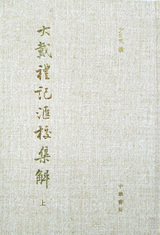 大戴禮記滙校集解
上
中華書局